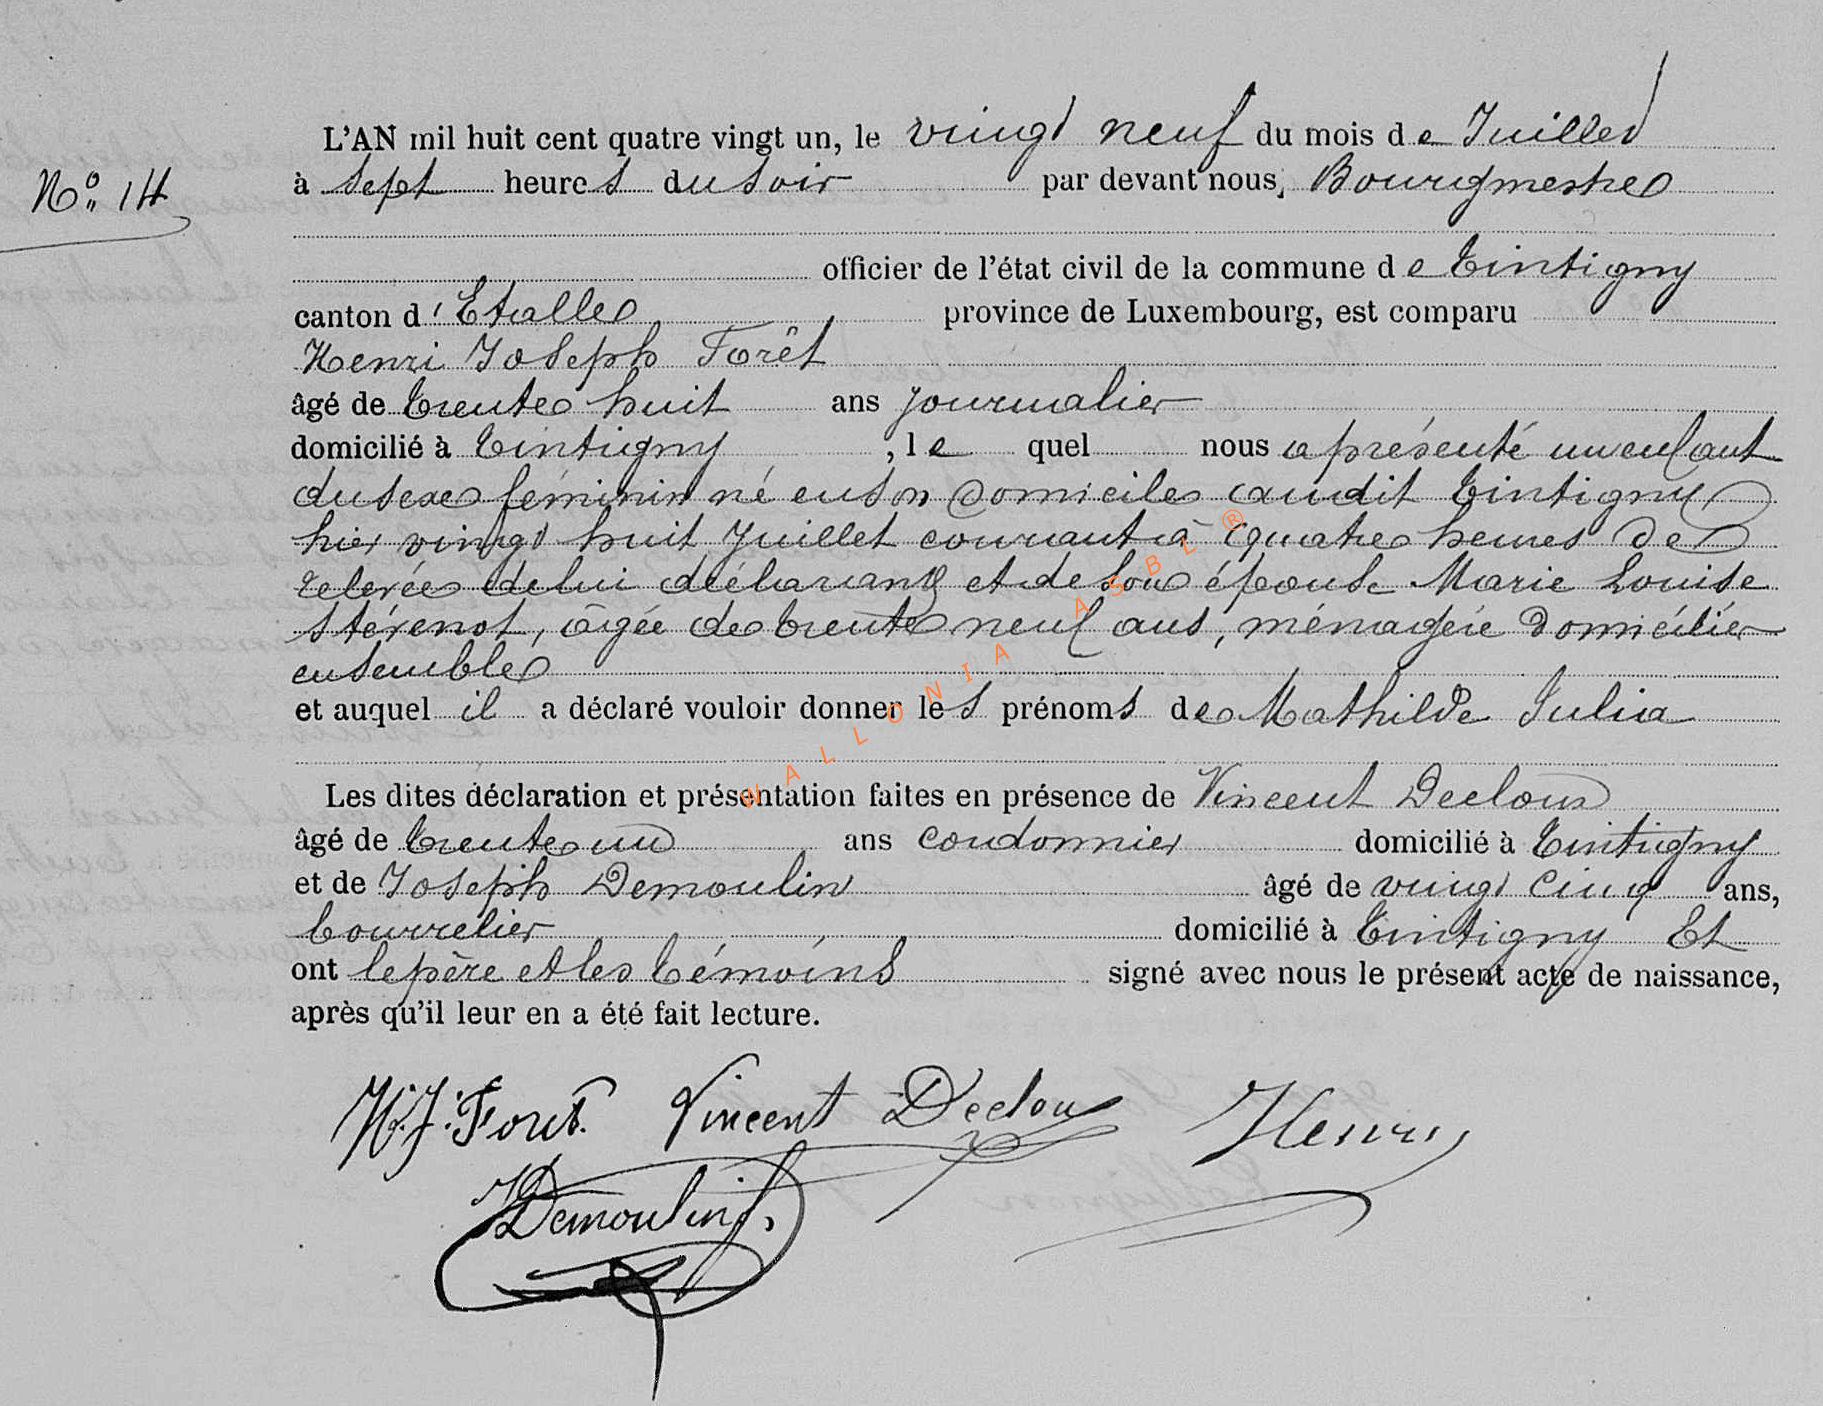 L'AN mil huit cent quatre vingt un, le vingt neuf du mois de Juillet
No 14
à sept heures du soir par devant nous, Bourgmestre
officier de l'état civil de la commune de Tintigny
canton d'Etalle province de Luxembourg, est comparu
Henri Joseph Forêt
âgé de trente huit ans journalier
domicilié à Tintigny, lequel nous a présenté un enfant
du sexe féminin né en son domicile audit Tintigny
hier vingt huit Juillet courant à quatre heures de
relevée de lui déclarant et de son épouse Marie Louise
Stévenot, âgée de trente neuf ans, ménagère domiciliés
ensemble
et auquel il a déclaré vouloir donner les prénoms de Mathilde Julia
Les dites déclaration et présentation faites en présence de Vincent Decloux
âgé de trente un ans cordonnier domicilié à Tintigny
et de Joseph Demoulin âgé de vingt cinq ans,
bourrelier domicilié à Tintigny Et
ont le père et les témoins signé avec nous le présent acte de naissance,
après qu'il leur en a été fait lecture.
H.J. Foret. Vincent Declou Henry
JDemoulin
WALLONIA ASBL ®